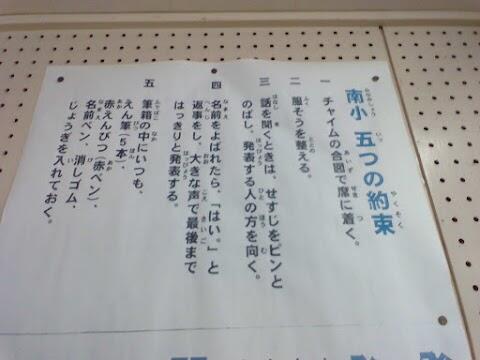 南小 五つの約束
一 チャイムの合図で席に着く。
二 服そうを整える。
三 話を聞くときは、せすじをピンと
のばし、発表する人の方を向く。
四 名前をよばれたら、「はい。」と
返事をし、大きな声で最後まで
はっきりと発表する。
五 筆箱の中にいつも、
えん筆(5本)、
赤えんぴつ(赤ペン)、
名前ペン、消しゴム、
じょうぎを入れておく。